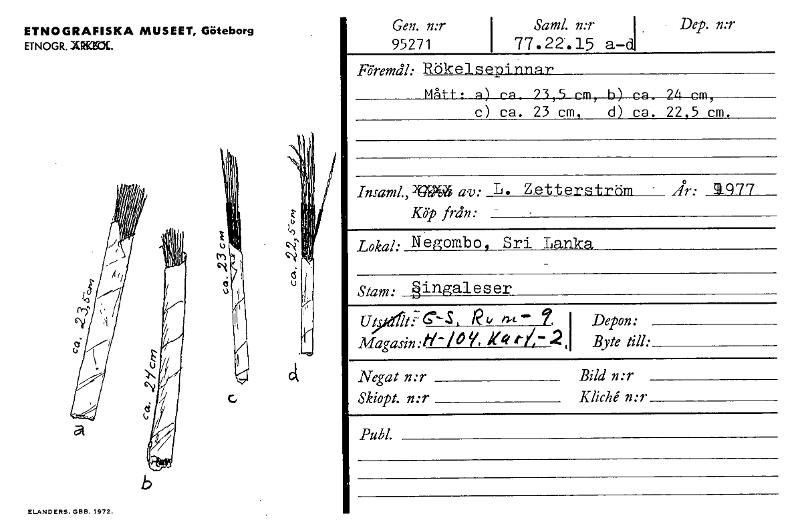 ETNOGRAFISKA MUSEET, Göteborg
ETNOGR. ARKEOL.
Gen. n:r
95271
Saml. n:r
77.22.15 a-d
Dep. n:r
Föremål: Rökelsepinnar
Mått: a) ca. 23,5 cm, b) ca. 24 cm,
c) ca. 23 cm, d) ca. 22,5 cm.
Insaml., av: L. Zetterström År: 1977
Köp från:
Lokal: Negombo, Sri Lanka
Stam: Singaleser
Utställt: G-S, Rum-9.
Magasin: H-104. Kart.-2.
Depon:
Byte till:
Negat n:r
Bild n:r
Skiopt. n:r
Kliché n:r
Publ.
ca. 23,5cm
a
ca. 24cm
b
ca. 23cm
c
ca. 22,5cm
d
ELANDERS. GBB. 1972.